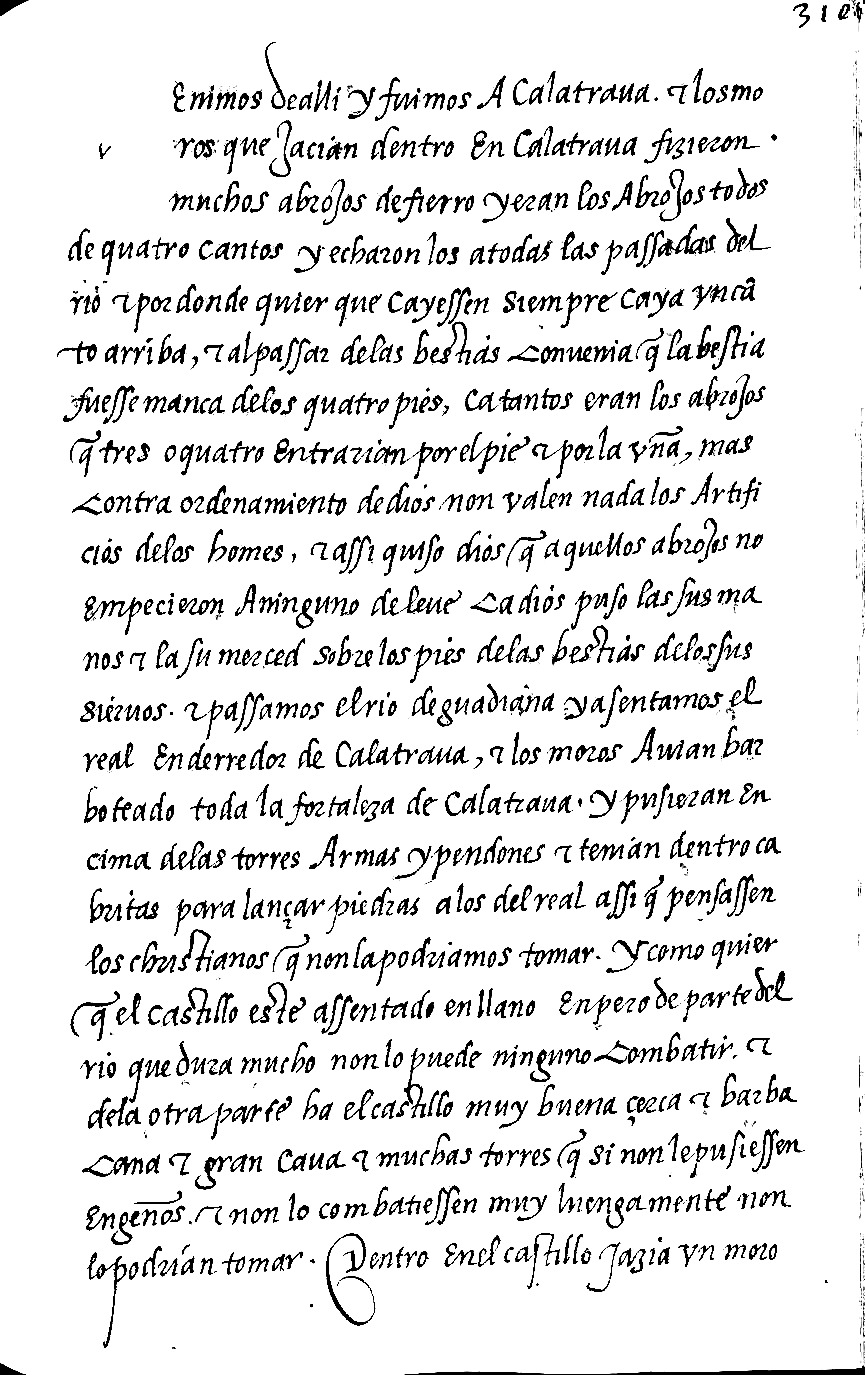 310
Enimos de alli y fuimos A Calatraua. & los mo
v ros que Jacian dentro En Calatraua fizieron.
muchos abroJos de fierro y eran los AbroJos todos
de quatro cantos y echaron los a todas las passadas del
rio & por donde quier que cayessen siempre caya vn cã
to arriba, & al passar de las bestias Conuenia q̃ la bestia
fuesse manca de los quatro pies, Ca tantos eran los abroJos
q̃ tres o quatro Entrarian por el pie & por la vña, mas
Contra ordenamiento de dios non valen nada los Artifi
cios de los homes, & assi quiso dios q̃ aquellos abroJos no
Empecieron A ninguno de leue Ca dios puso las sus ma
nos & la su merced sobre los pies de las bestias de los sus
sieruos. & passamos el rio de guadiana y asentamos el
real En derredor de Calatraua, & los moros Auian bar
boteado toda la fortaleza de Calatraua. Y pusieran En
cima de las torres Armas y pendones & tenian dentro ca
britas para lançar piedras a los del real assi q̃ pensassen
los christianos q̃ non la podriamos tomar. Y como quier
q̃ el Castillo este assentado en llano Enpero de parte del
rio que dura mucho non lo puede ninguno Combatir. &
de la otra parte ha el castillo muy buena çerca & barba
Cana & gran Caua & muchas torres q̃ si non le pusiessen
Engeños. & non lo combatiessen muy luengamente non
lo podrian tomar. Dentro En el castillo Jazia vn moro